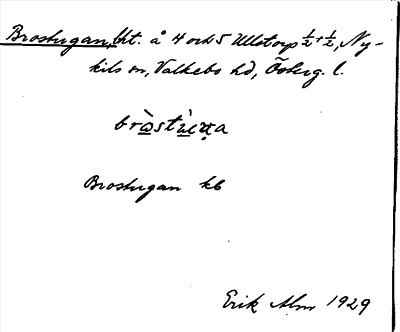 Brostugan, lht. å 4 och 5 Ullstorp ½+½, Ny-
kils sn, Valkebo hd, Österg. l.
Brostugan kb
Erik Alm 1929